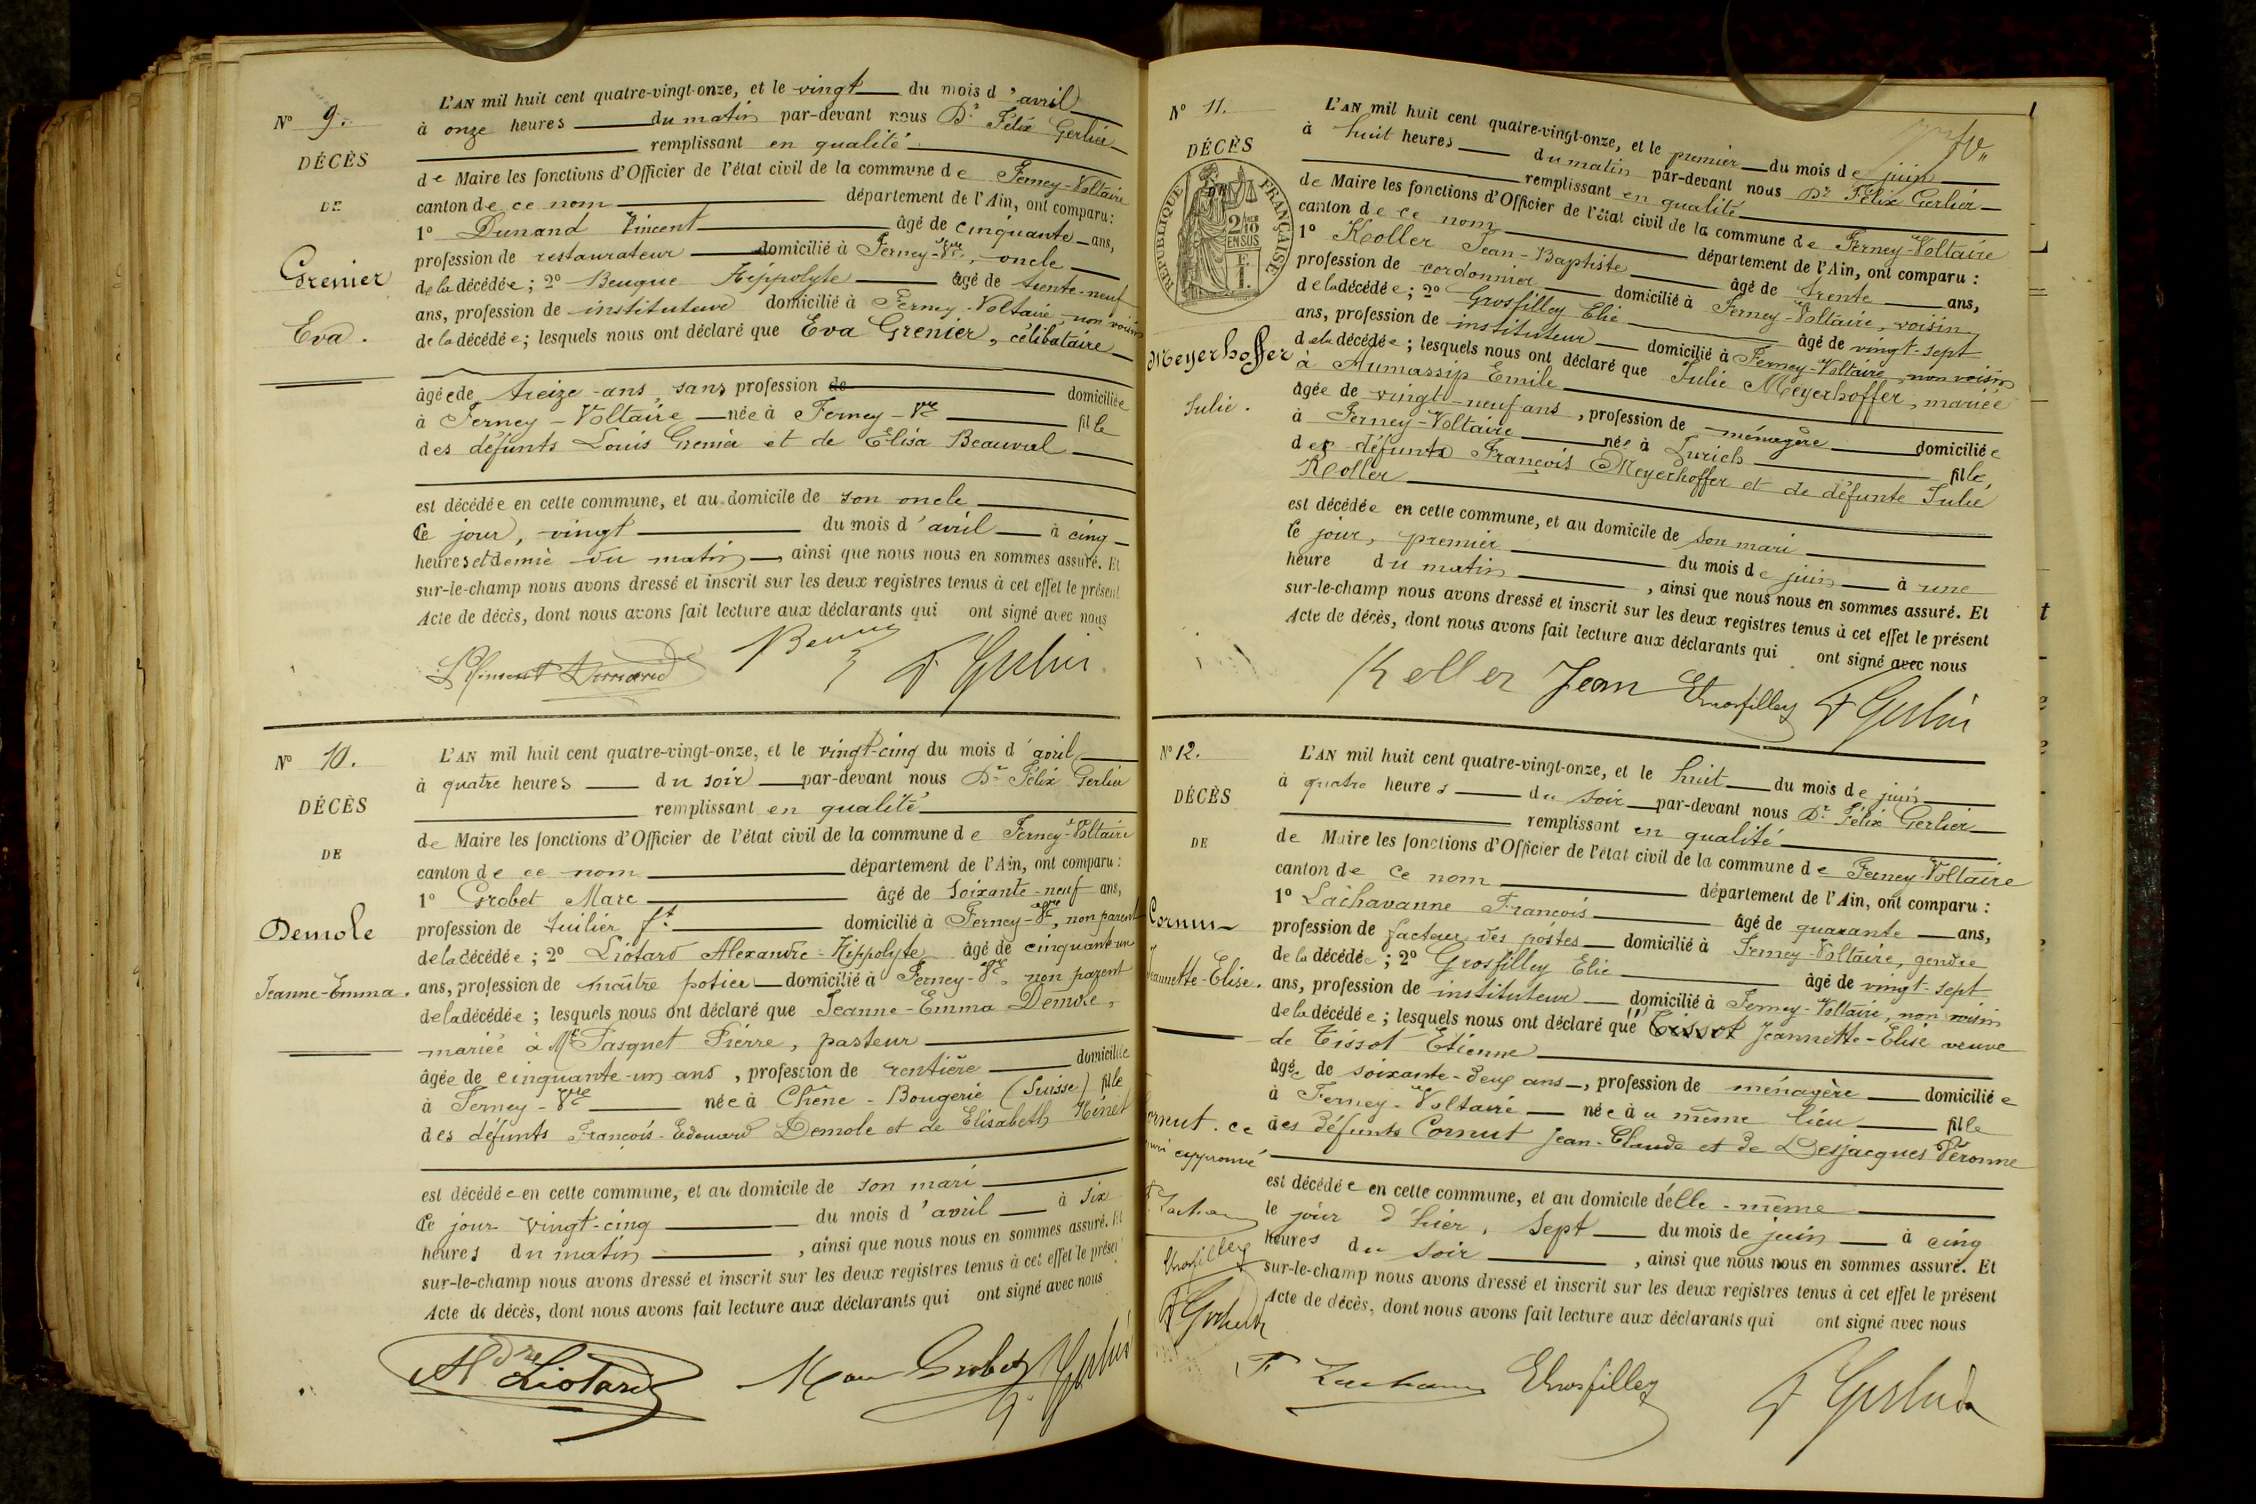 N° 9.
DÉCÈS
DE
Grenier
Eva.
L'AN mil huit cent quatre-vingt-onze, et le vingt du mois d'avril
à onze heures du matin par-devant nous Dr Félix Gerlier
remplissant en qualité
de Maire les fonctions d'Officier de l'état civil de la commune de Ferney-Voltaire
canton de ce nom département de l'Ain, ont comparu :
1° Dunand Vincent âgé de cinquante ans,
profession de restaurateur domicilié à Ferney-Vre, oncle
de la décédée ; 2° Hippolyte âgé de trente-neuf
ans, profession de instituteur domicilié à Ferney-Voltaire non voisin
de la décédée ; lesquels nous ont déclaré que Eva Grenier, célibataire
âgée de treize ans, sans profession de domiciliée
à Ferney-Voltaire née à Ferney-Vre fille
des défunts Louis Grenier et de Elisa Beauval
est décédée en cette commune, et au domicile de son oncle
Ce jour, vingt du mois d'avril à cinq
heures et demie du matin, ainsi que nous nous en sommes assuré. Et
sur-le-champ nous avons dressé et inscrit sur les deux registres tenus à cet effet le présent
Acte de décès, dont nous avons fait lecture aux déclarants qui ont signé avec nous
Vincent Dunand F Gerlier
N° 10.
DÉCÈS
DE
Demole
Jeanne-Emma.
L'AN mil huit cent quatre-vingt-onze, et le vingt-cinq du mois d'avril
à quatre heures du soir par-devant nous Dr Félix Gerlier
remplissant en qualité
de Maire les fonctions d'Officier de l'état civil de la commune de Ferney-Voltaire
canton de ce nom département de l'Ain, ont comparu :
1° Grobet Marc âgé de soixante-neuf ans,
profession de tuilier ft domicilié à Ferney-Vre, non parent
de la décédée ; 2° Liotard Alexandre-Hippolyte âgé de cinquante-un
ans, profession de maître potier domicilié à Ferney-Vre, non parent
de la décédée ; lesquels nous ont déclaré que Jeanne-Emma Demole,
mariée à Mr Pasquet Pierre, pasteur
âgée de cinquante-un ans, profession de rentière domiciliée
à Ferney-Vre née à Chêne-Bougerie (Suisse) fille
des défunts François-Edouard Demole et de Elisabeth Hénet
est décédée en cette commune, et au domicile de son mari
Ce jour vingt-cinq du mois d'avril à six
heures du matin, ainsi que nous nous en sommes assuré. Et
sur-le-champ nous avons dressé et inscrit sur les deux registres tenus à cet effet le présent
Acte de décès, dont nous avons fait lecture aux déclarants qui ont signé avec nous
Aldre Liotard Marc Grobet F. Gerlier
N° 11.
DÉCÈS
RÉPUBLIQUE FRANÇAISE
2/10 EN SUS
Meyerhoffer
Julie.
L'AN mil huit cent quatre-vingt-onze, et le premier du mois de juin
à huit heures du matin par-devant nous Dr Félix Gerlier
remplissant en qualité
de Maire les fonctions d'Officier de l'état civil de la commune de Ferney-Voltaire
canton de ce nom département de l'Ain, ont comparu :
1° Koller Jean-Baptiste âgé de trente ans,
profession de cordonnier domicilié à Ferney-Voltaire, voisin
de la décédée ; 2° Grosfilley Elie âgé de vingt-sept
ans, profession de instituteur domicilié à Ferney-Voltaire, non voisin
de la décédée ; lesquels nous ont déclaré que Julie Meyerhoffer, mariée
à Aumassip Emile
âgée de vingt-neuf ans, profession de ménagère domiciliée
à Ferney-Voltaire née à Zurich fille,
des défunts François Meyerhoffer et de défunte Julie
Koller
est décédée en cette commune, et au domicile de son mari
Ce jour, premier du mois de juin à une
heure du matin, ainsi que nous nous en sommes assuré. Et
sur-le-champ nous avons dressé et inscrit sur les deux registres tenus à cet effet le présent
Acte de décès, dont nous avons fait lecture aux déclarants qui ont signé avec nous
Keller Jean EGrosfilley F Gerlier
N° 12.
DÉCÈS
DE
Cornu
Jeannette-Elise.
Cornut. ce
approuvé
EGrosfilley
F Gerlier
L'AN mil huit cent quatre-vingt-onze, et le huit du mois de juin
à quatre heures du soir par-devant nous Dr Félix Gerlier
remplissant en qualité
de Maire les fonctions d'Officier de l'état civil de la commune de Ferney-Voltaire
canton de ce nom département de l'Ain, ont comparu :
1° Lachavanne François âgé de quarante ans,
profession de facteur des postes domicilié à Ferney-Voltaire, gendre
de la décédée ; 2° Grosfilley Elie âgé de vingt-sept
ans, profession de instituteur domicilié à Ferney-Voltaire, non voisin
de la décédée ; lesquels nous ont déclaré que Tissot Jeannette-Elise veuve
de Tissot Etienne
âgée de soixante-deux ans, profession de ménagère domiciliée
à Ferney-Voltaire née au même lieu fille
des défunts Cornut Jean-Claude et de Desjacques Péronne
est décédée en cette commune, et au domicile d'elle-même
le jour d'hier, sept du mois de juin à cinq
heures du soir, ainsi que nous nous en sommes assuré. Et
sur-le-champ nous avons dressé et inscrit sur les deux registres tenus à cet effet le présent
Acte de décès, dont nous avons fait lecture aux déclarants qui ont signé avec nous
EGrosfilley F Gerlier